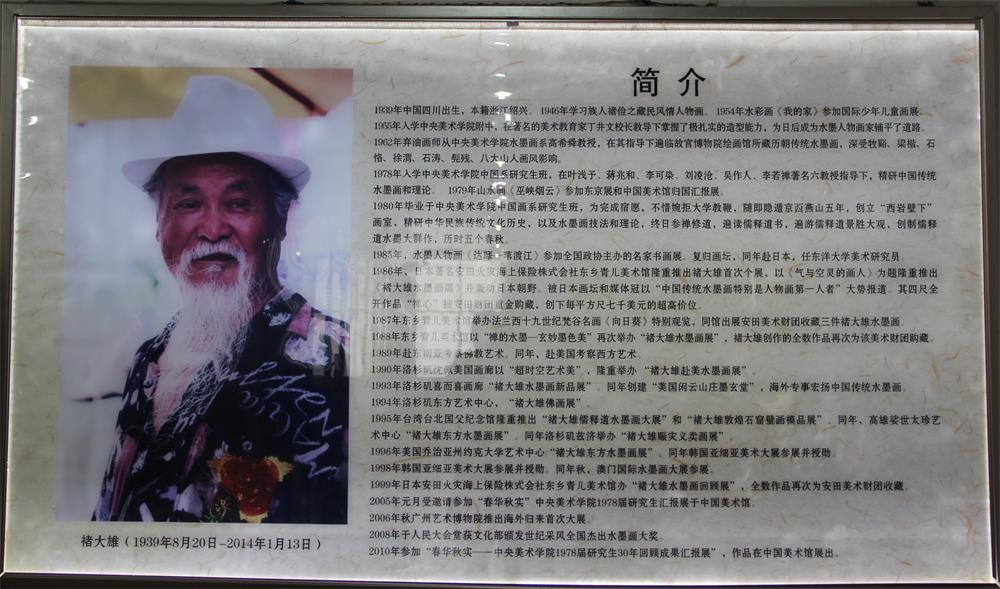 简 介
1939年中国四川出生，本籍浙江绍兴。1946年学习族人褚俭之藏民风情人物画。1954年水彩画《我的家》参加国际少年儿童画展。
1955年入学中央美术学院附中，在著名的美术教育家丁井文校长教导下掌握了极扎实的造型能力，为日后成为水墨人物画家铺平了道路。
1962年弃油画师从中央美术学院水墨画系高希舜教授，在其指导下遍临故宫博物院绘画馆所藏历朝传统水墨画，深受牧谿、梁楷、石
恪、徐渭、石涛、髡残、八大山人画风影响。
1978年入学中央美术学院中国系研究生班，在叶浅予、蒋兆和、李可染、刘凌沧、吴作人、李若禅著名六教授指导下，精研中国传统
水墨画和理论。 1979年山水画《巫峡烟云》参加东京展和中国美术馆归国汇报展。
1980年毕业于中央美术学院中国画系研究生班，为完成宿愿，不惜婉拒大学教鞭，随即隐遁京西燕山五年，创立“西岩壁下”
画室，精研中华民族传统文化历史，以及水墨画技法和理论，终日参禅修道，遍读儒释道书，遍游儒释道景胜大观，创制儒释
道水墨大群作，历时五个春秋。
1985年，水墨人物画《达摩一苇渡江》参加全国政协主办的名家书画展。复归画坛，同年赴日本，任东洋大学美术研究员。
1986年，日本著名安田火灾海上保险株式会社东乡青儿美术馆隆重推出褚大雄首次个展，以《气与空灵的画人》为题隆重推出
《褚大雄水墨画展》并轰动日本朝野。被日本画坛和媒体冠以“中国传统水墨画特别是人物画第一人者”大势报道。其四尺全
开作品“禅心”被安田财团重金购藏，创下每平方尺七千美元的超高价位。
1987年东乡青儿美术馆举办法兰西十九世纪梵谷名画《向日葵》特别观览，同馆出展安田美术财团收藏三件褚大雄水墨画。
1988年东乡青儿美术馆以“禅的水墨—玄妙墨色美”再次举办“褚大雄水墨画展”，褚大雄创作的全数作品再次为该美术财团购藏。
1989年赴东南亚考察佛教艺术。同年，赴美国考察西方艺术。
1990年洛杉矶沈佩美国画廊以“超时空艺术美”，隆重举办“褚大雄赴美水墨画展”。
1993年洛杉矶喜而喜画廊“褚大雄水墨画新品展”。同年创建“美国闲云山庄墨玄堂”，海外专事宏扬中国传统水墨画。
1994年洛杉矶东方艺术中心，“褚大雄佛画展”
1995年台湾台北国父纪念馆隆重推出“褚大雄儒释道水墨画大展”和“褚大雄敦煌石窟壁画模品展”。同年，高雄娑世太珍艺
术中心“褚大雄东方水墨画展”。同年洛杉矶兹济举办“褚大雄赈灾义卖画展”
1996年美国乔治亚州约克大学艺术中心“褚大雄东方水墨画展”。同年韩国亚细亚美术大展参展并授勋。
1998年韩国亚细亚美术大展参展并授勋。同年秋，澳门国际水墨画大展参展。
1999年日本安田火灾海上保险株式会社东乡青儿美术馆办“褚大雄水墨画回顾展”，全数作品再次为安田美术财团收藏。
2005年元月受邀请参加“春华秋实”中央美术学院1978届研究生汇报展于中国美术馆。
2006年秋广州艺术博物院推出海外归来首次大展。
2008年于人民大会堂获文化部颁发世纪采风全国杰出水墨画大奖。
2010年参加“春华秋实——中央美术学院1978届研究生30年回顾成果汇报展”，作品在中国美术馆展出。
褚大雄（1939年8月20日-2014年1月13日）